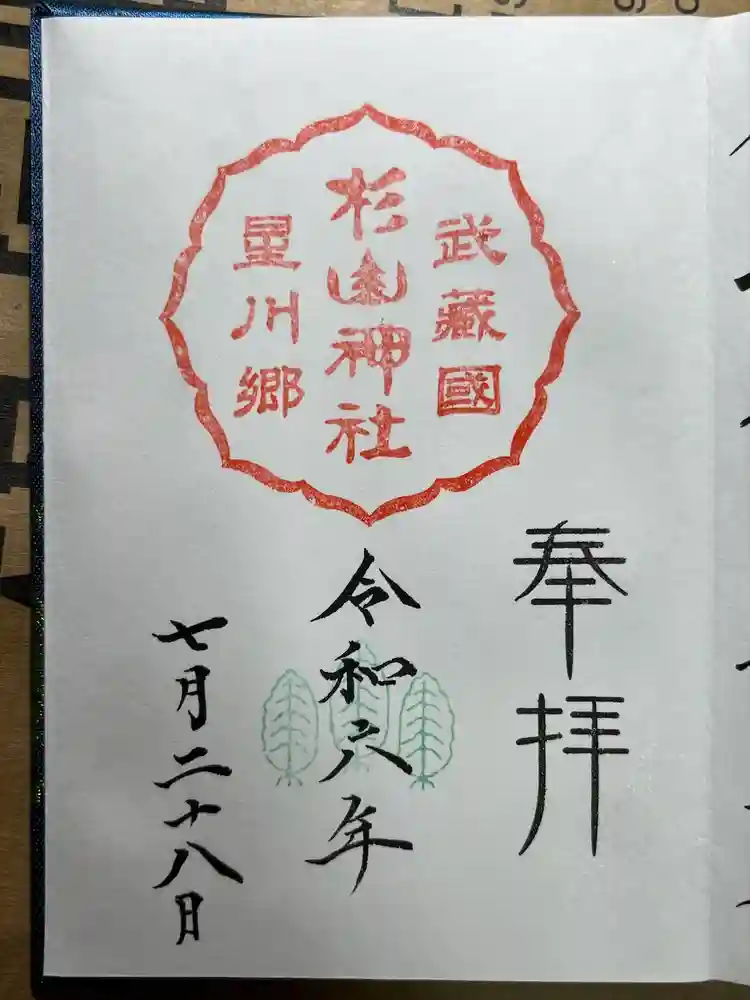 武藏國
杉山神社
星川郷
奉拝
令和六年
七月二十八日